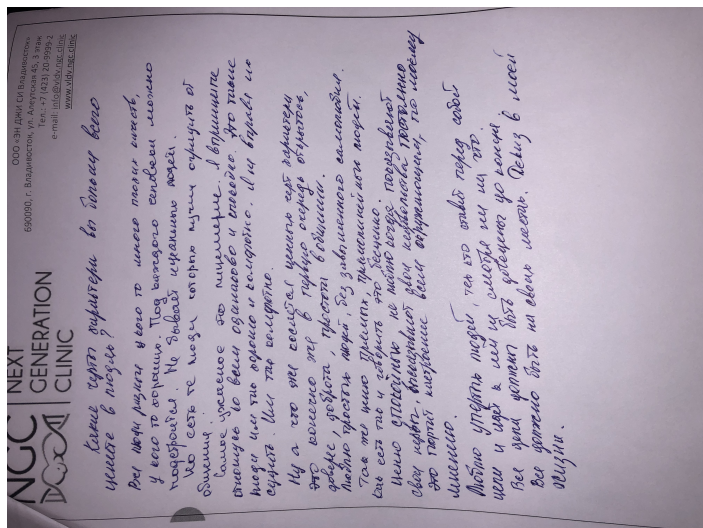 NGC
NEXT
GENERATION
CLINIC
ООО «ЭН ДЖИ СИ Владивосток»
690090, г. Владивосток, ул. Алеутская 45, 3 этаж
Тел.: +7 (423) 20-9999-2
e-mail: info@vldv.ngc.clinic
www.vldv.ngc.clinic
Какие черты характера вы больше всего
цените в людях?
Все люди разные у кого то много плохих качеств,
у кого то хороших. Под каждого человека можно
подстроится. Не бывает идеальных людей.
Но есть те люди которых нужно оградить от
общения.
Самое ужасное это лицемерие. Я в принципе
отношусь ко всем одинаково и спокойно. Это такие
люди им так хорошо и комфортно. Я не вправе их
судить. Им так комфортно.
Ну а что же касается ценных черт характера
это конечно же в первую очередь открытость,
доверие, доброта, простота в общении.
Люблю простых людей, без завышенного самомнения.
Так же ценю прямых, прямолинейных людей.
Как есть так и говорить это бесценно.
Ценю спокойных не люблю когда показывают
свои нервы свои недовольства постоянно
это портит настроение всем окружающим, по моему
мнению.
Люблю упертых людей тех кто ставит перед собой
цели и идет к ним не смотря ни на что.
Все дела должны быть доведены до конца.
Все должно быть на своих местах. Девиз в моей
жизни.